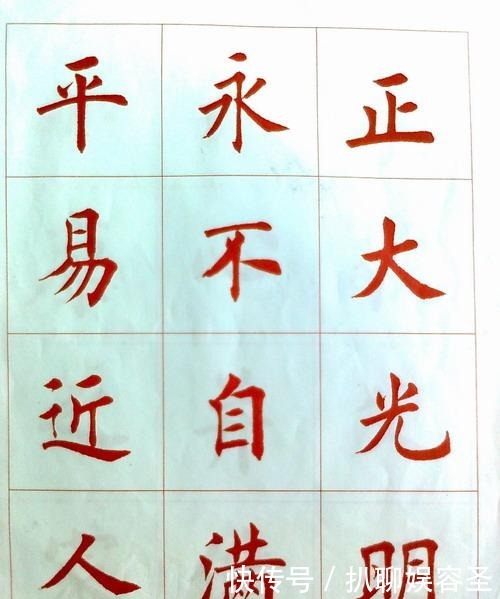 正大光明
永不自满
平易近人
快传号/扒聊娱容圣